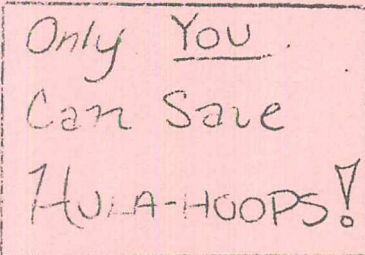 Only You
Can Save
HULA-HOOPS!